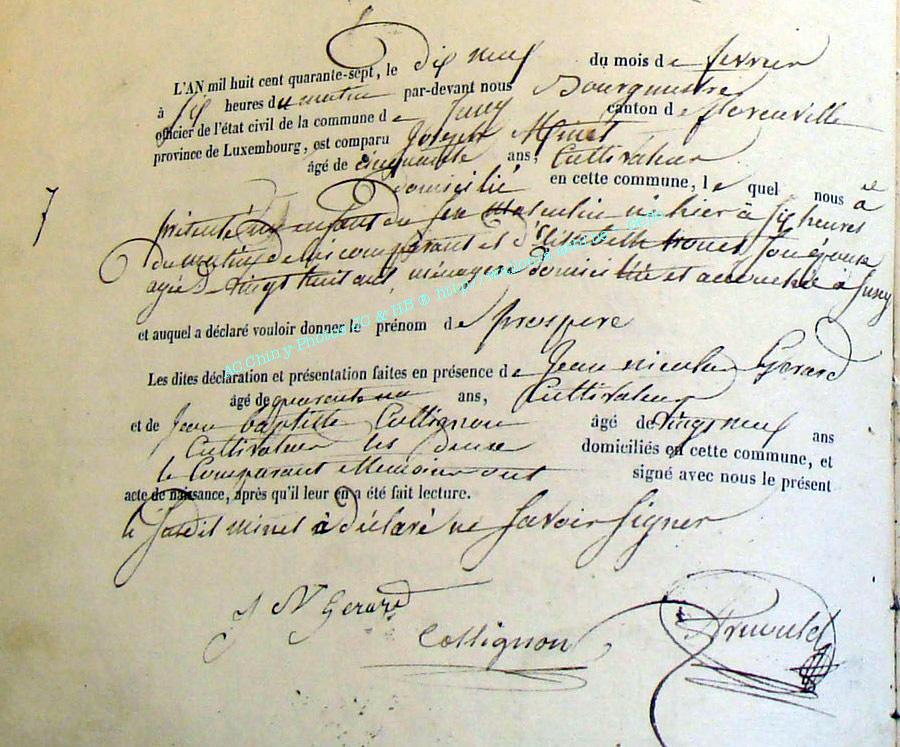 L'AN mil huit cent quarante-sept, le dix neuf du mois de fevrier
à six heures du matin par-devant nous Bourgmestre
officier de l'état civil de la commune de Jusey canton de florenville
province de Luxembourg, est comparu Joseph Minet
âgé de cinquante ans, Cultivateur
domicilié en cette commune, le quel nous a
7
présenté un enfant du sex masculin né hier à six heures
du matin de lui comparant et d' son épouse
agée de vingt huit ans, ménagere domiciliée et accouchée à Jusey
et auquel a déclaré vouloir donner le prénom de prospere
Les dites déclaration et présentation faites en présence de Jean nicolas Gerard
âgé de quarante un ans, Cultivateur
et de Jean baptiste Collignon âgé de vingt neuf ans
Cultivateur les deux domiciliés en cette commune, et
le Comparant ont signé avec nous le présent
acte de naissance, après qu'il leur en a été fait lecture.
le Susdit minet à déclaré ne Savoir Signer
J N Gerard
Collignon
AC Chiny - Photos JC & HB ® http://